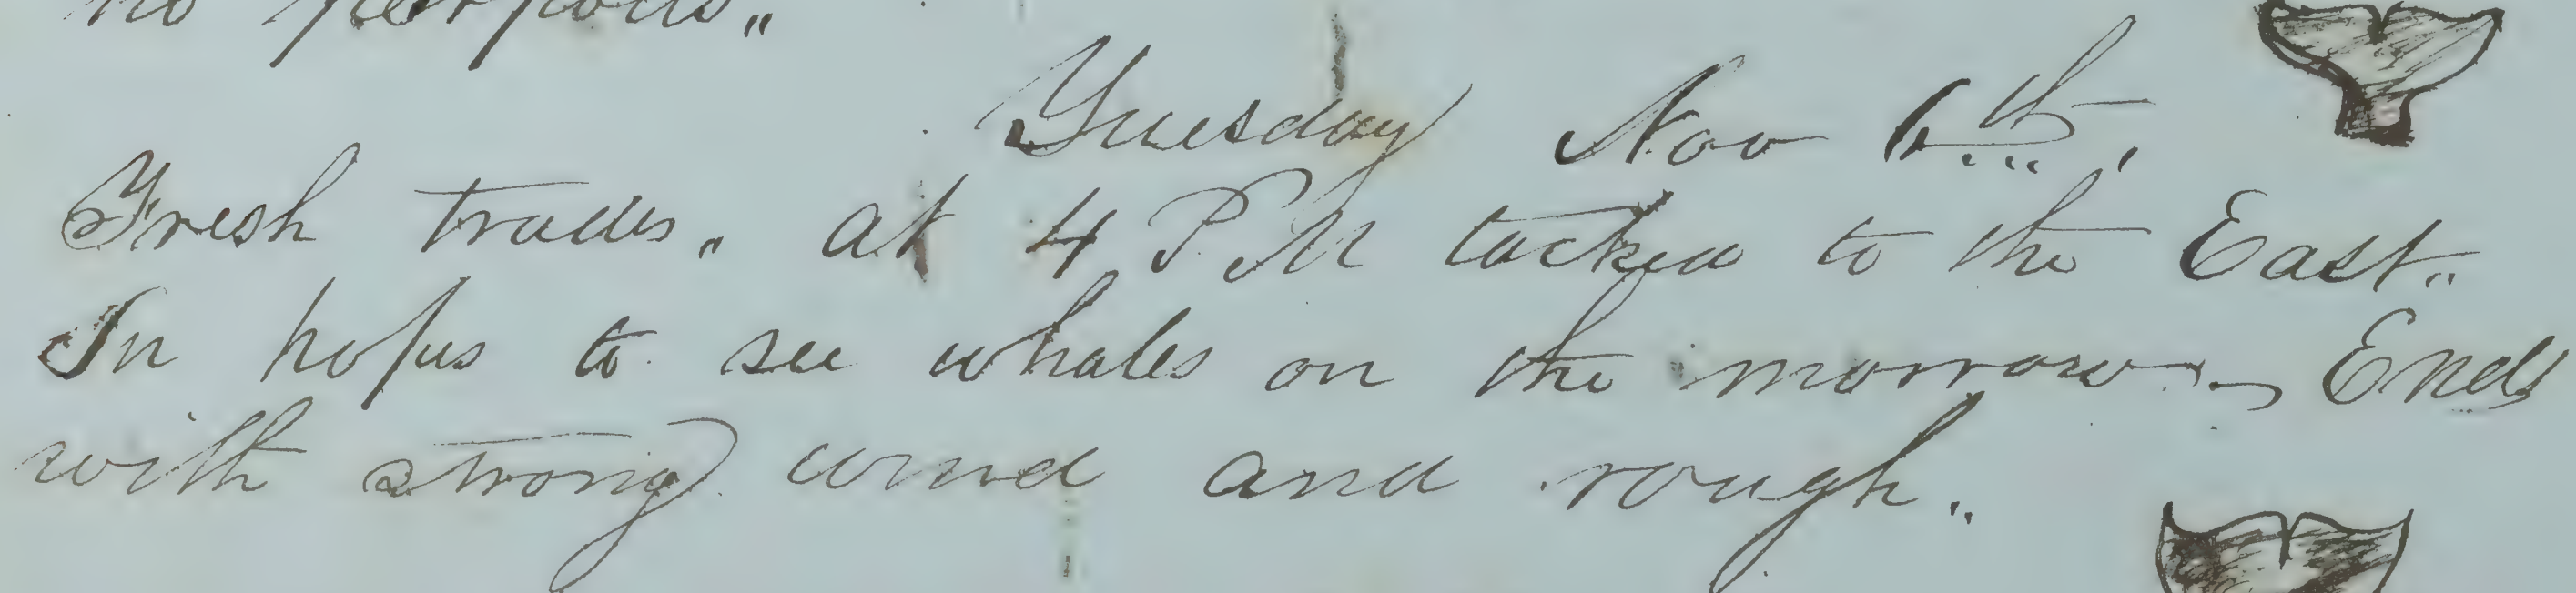 no perpous.,,
Tuesday Nov 6th,
Fresh trades.,, at 4 P.M tacked to the East.,,
In hopes to see whales on the morrow. Ends
with strong wind and rough.,,